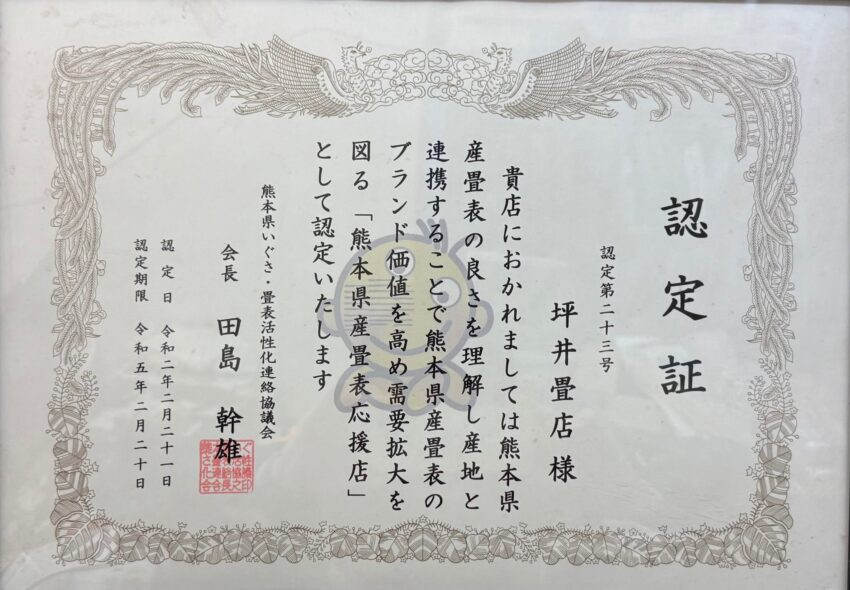 認定証
認定第二十三号
坪井畳店様
貴店におかれましては熊本県
産畳表の良さを理解し産地と
連携することで熊本県産畳表の
ブランド価値を高め需要拡大を
図る「熊本県産畳表応援店」
として認定いたします
熊本県いぐさ・畳表活性化連絡協議会
会長 田島 幹雄
認定日 令和二年二月二十一日
認定期限 令和五年二月二十日